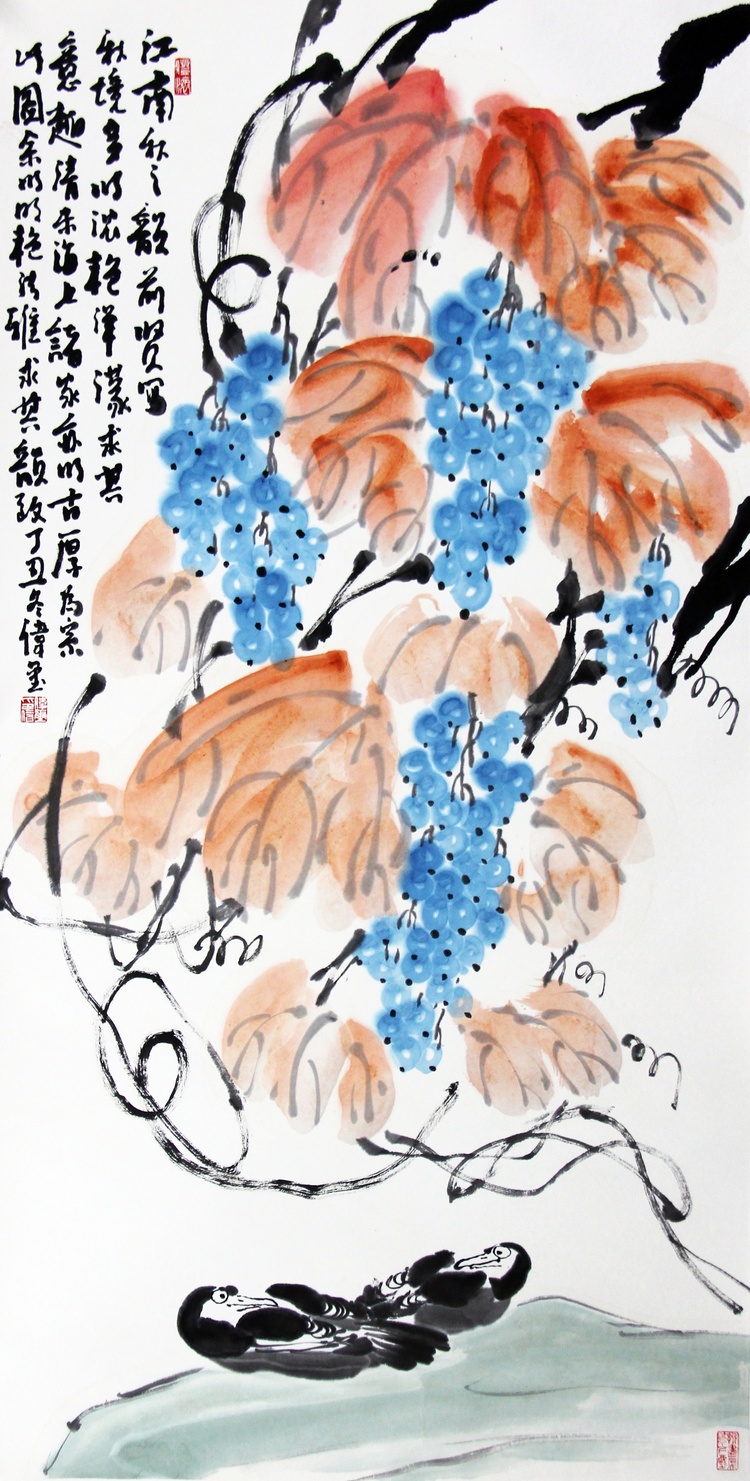 江南秋之韻前賢寫
秋境多以濃艷渾濛求其
意趣清末海上諸家亦以古厚為宗
此圖余以明艷清雅求其韻致丁丑冬偉